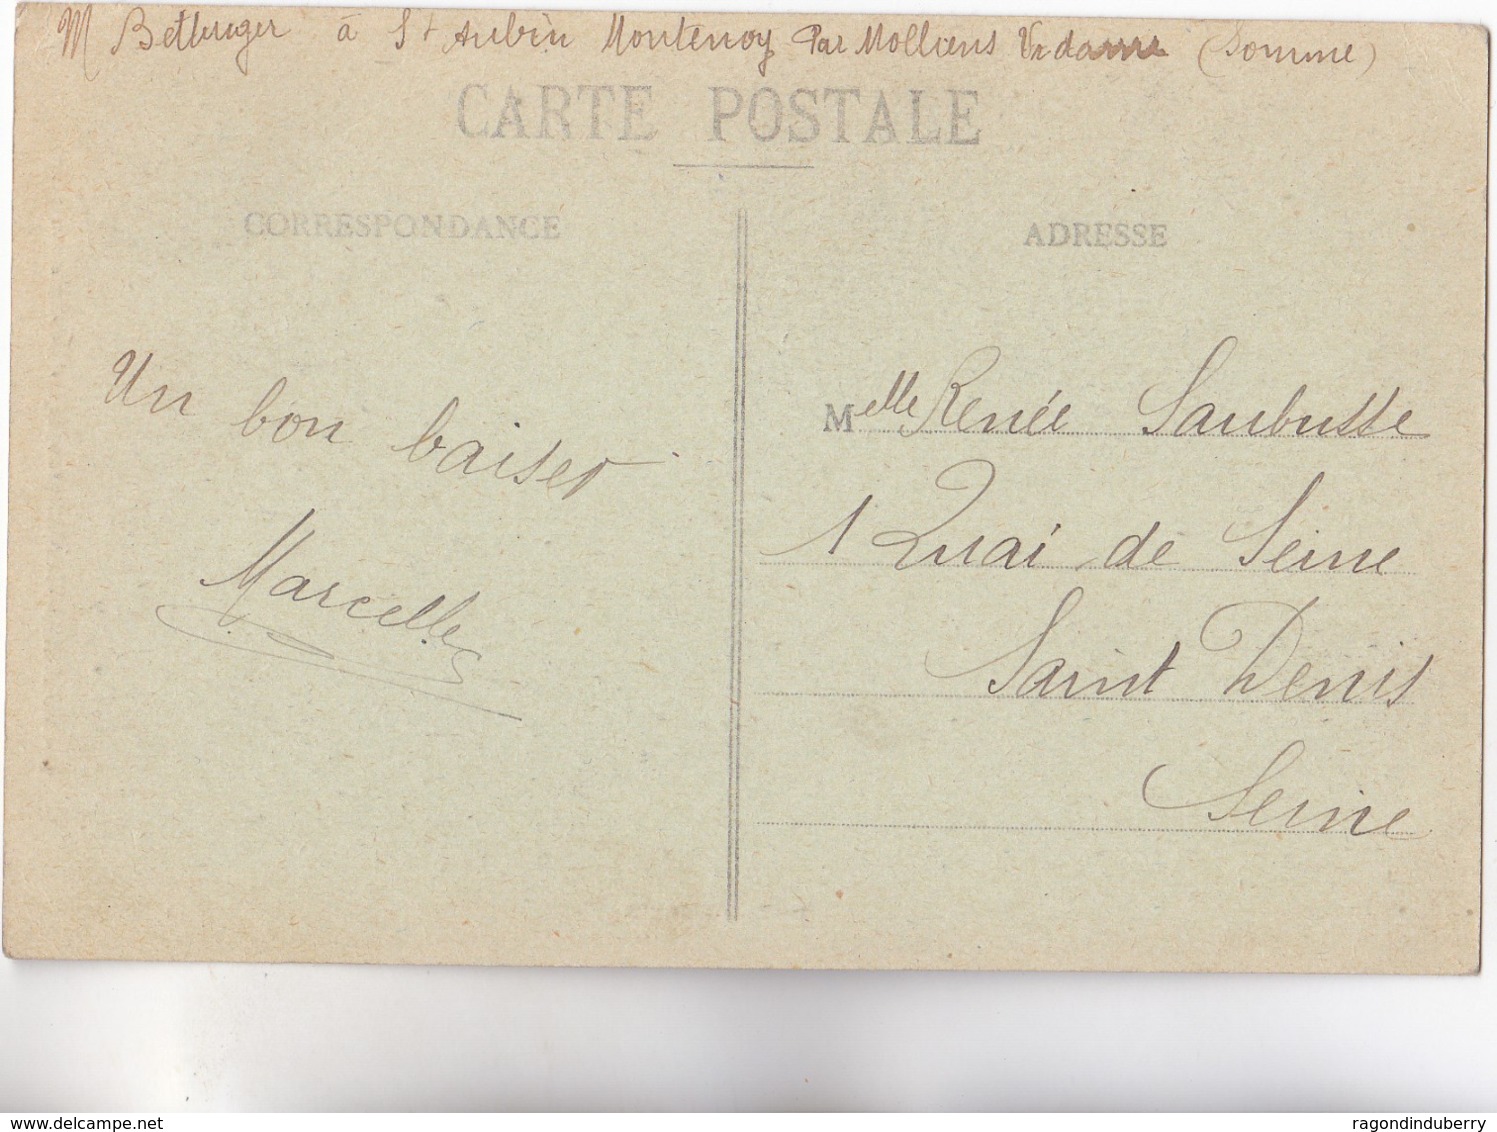 M Betbuger à St Aubin Montenoy Par Molliens Vidame (Somme)
CARTE POSTALE
CORRESPONDANCE
Un bon baiser
Marcelle
ADRESSE
Melle Renée Saubusse
1 Quai de Seine
Saint Denis
Seine
www.delcampe.net
ragondinduberry